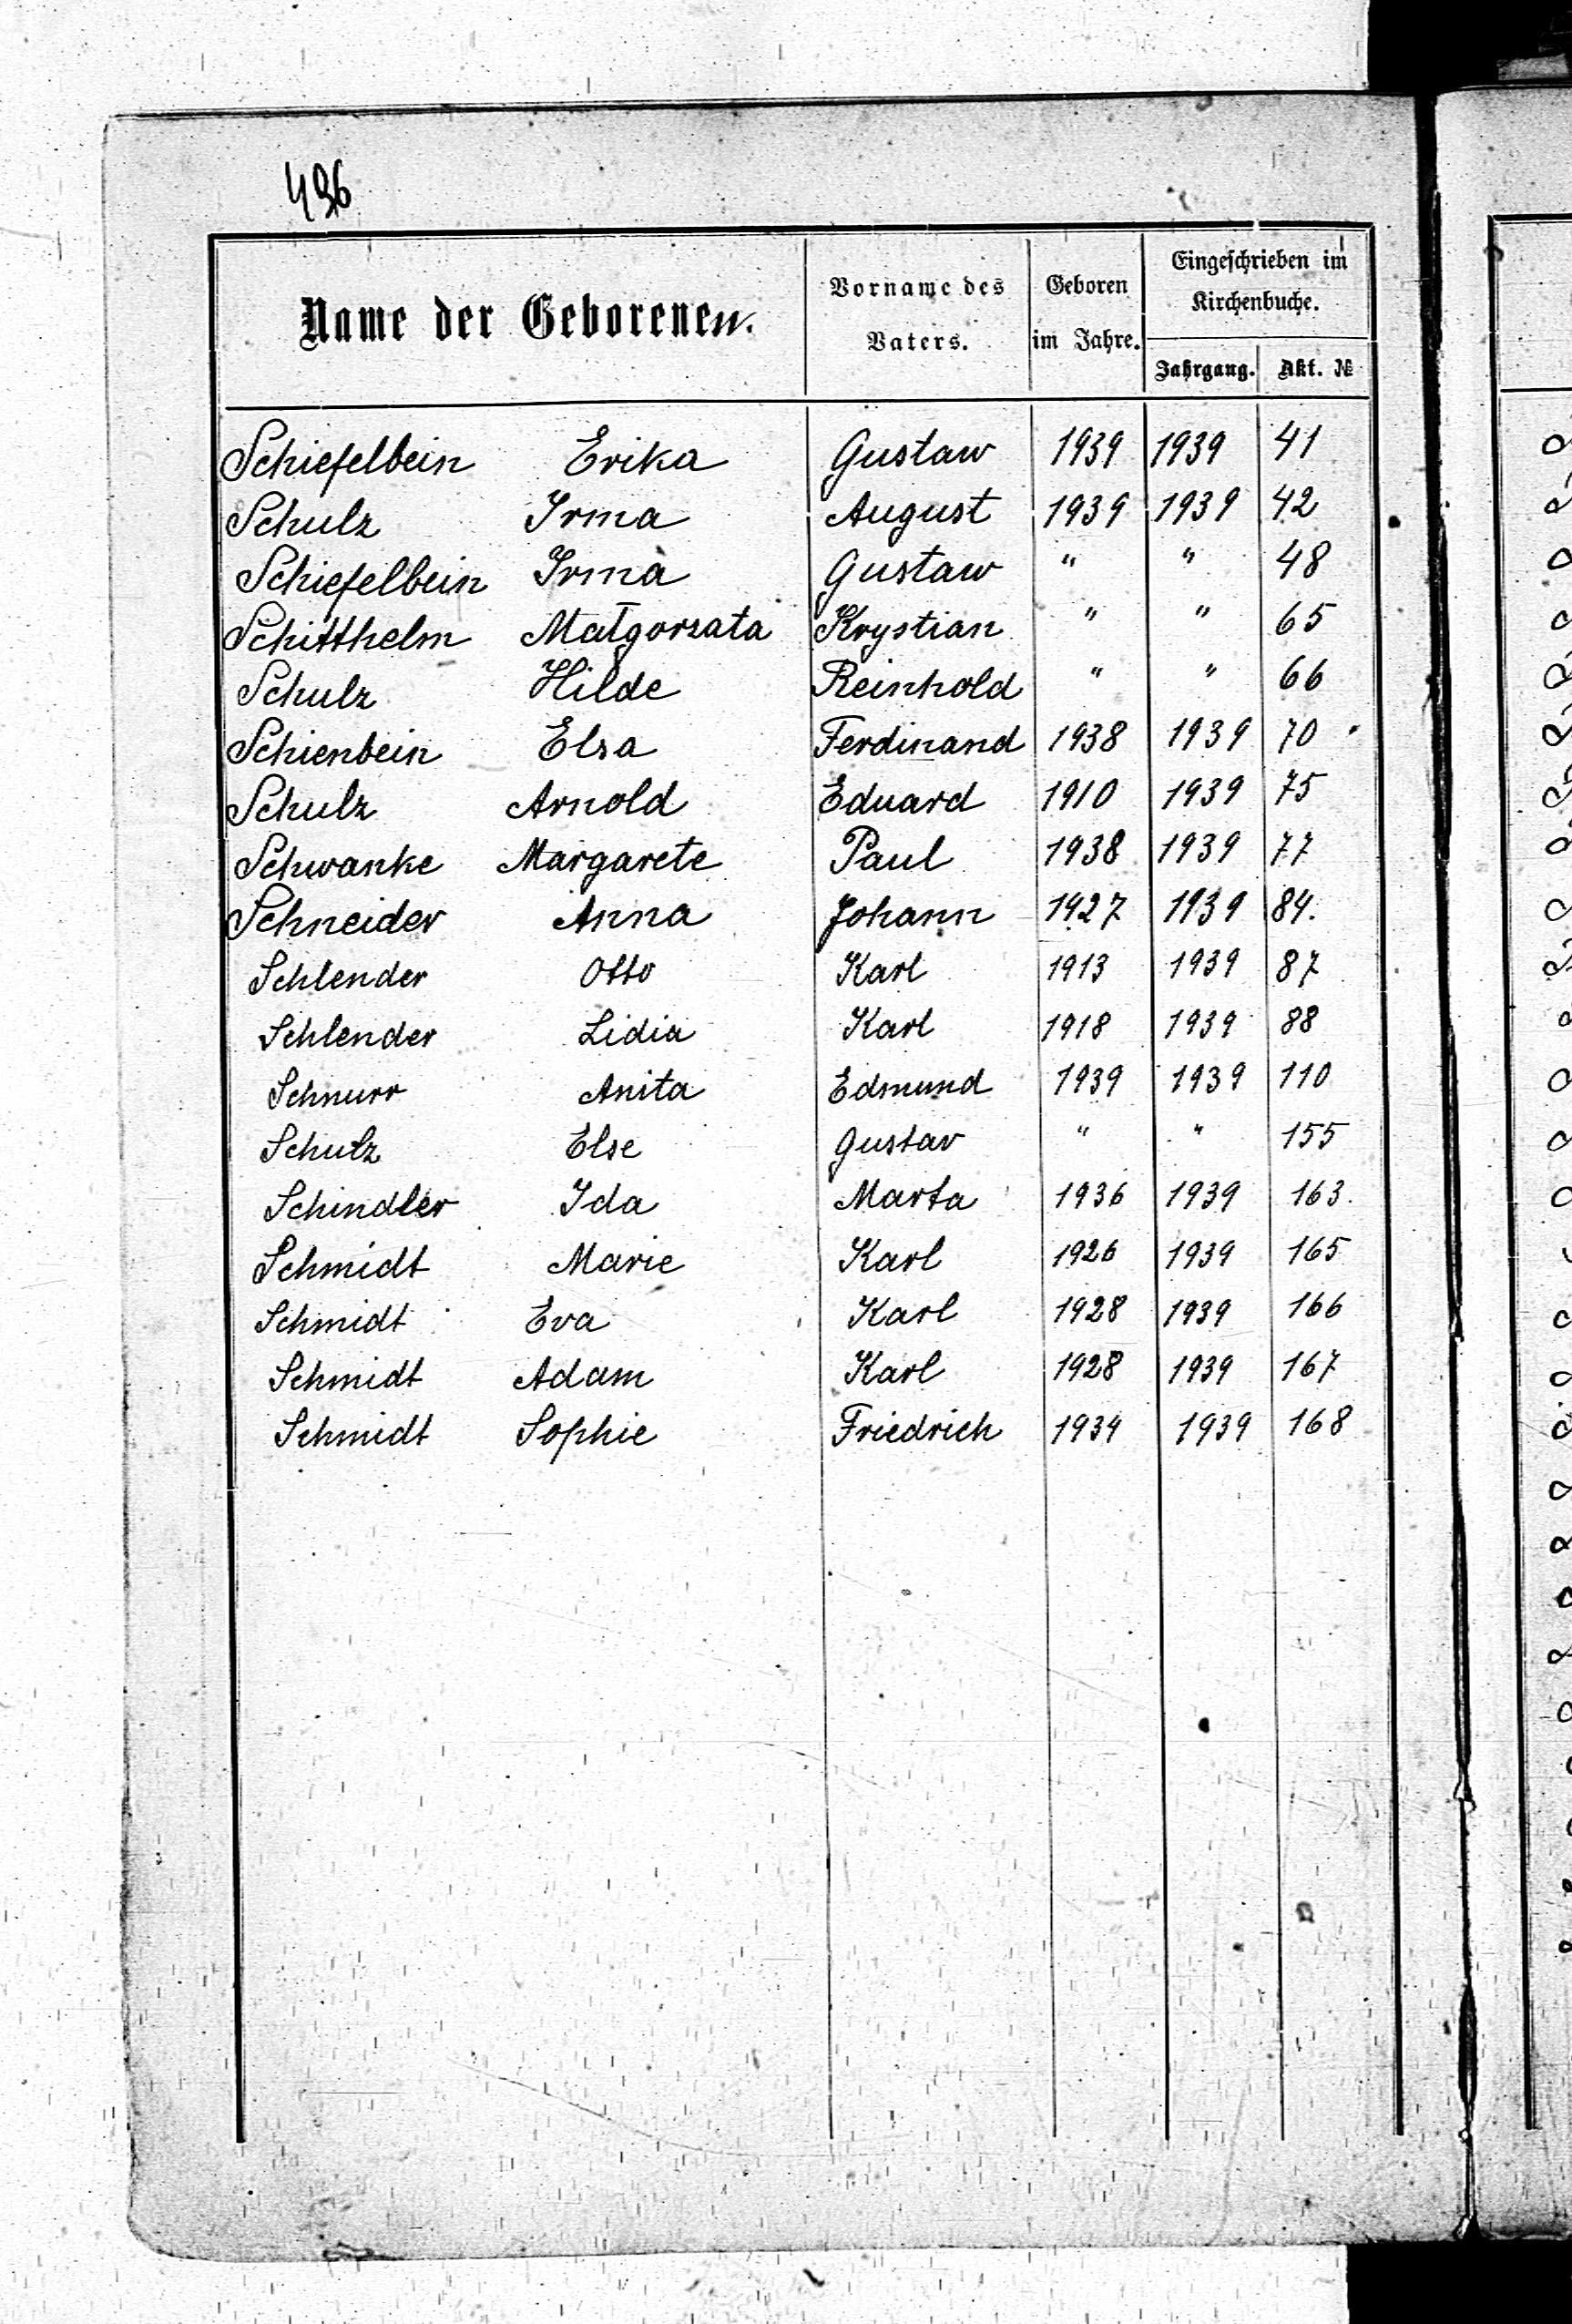 496
Name der Geborenen.
Vorname des Vaters.
Geboren im Jahre.
Eingeschrieben im Kirchenbuche.
Jahrgang. Akt. №
Schiefelbein Erika Gustaw 1939 1939 41
Schulz Irma August 1939 1939 42
Schiefelbein Irma Gustaw " " 48
Schitthelm Małgorzata Krystian " " 65
Schulz Hilde Reinhold " " 66
Schienbein Elsa Ferdinand 1938 1939 70
Schulz Arnold Eduard 1910 1939 75
Schwanke Margarete Paul 1938 1939 77
Schneider Anna Johann 1927 1939 84.
Schlender Otto Karl 1913 1939 87
Schlender Lidia Karl 1918 1939 88
Schnurr Anita Edmund 1939 1939 110
Schulz Else Gustav " " 155
Schindler Ida Marta 1936 1939 163.
Schmidt Marie Karl 1926 1939 165
Schmidt Eva Karl 1928 1939 166
Schmidt Adam Karl 1928 1939 167
Schmidt Sophie Friedrich 1934 1939 168